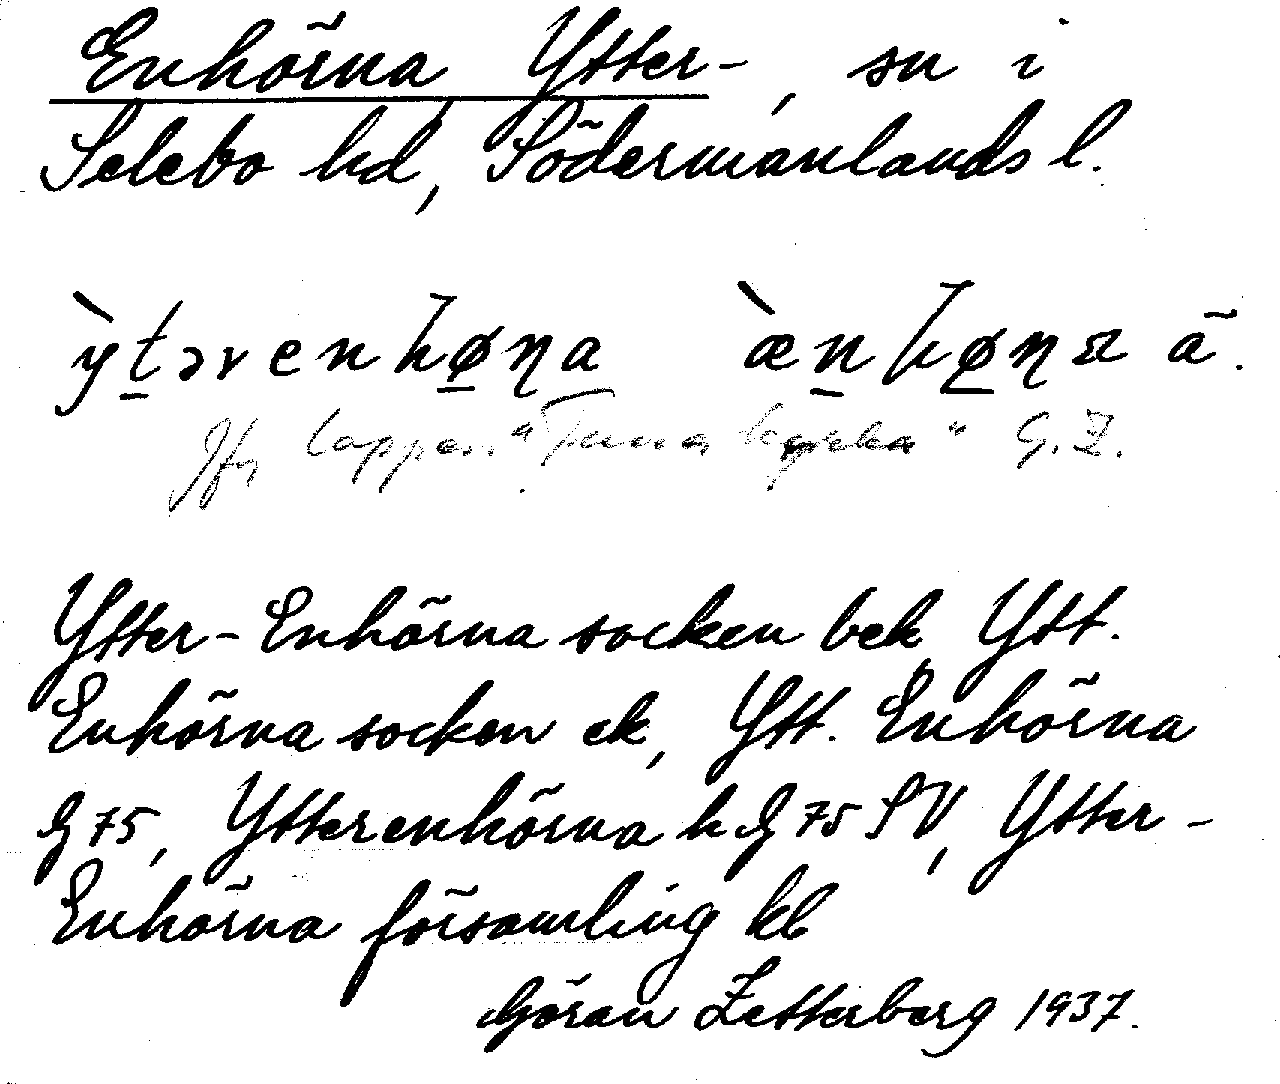 Enhörna, Ytter-, sn i
Selebo hd, Södermanlands l.
ỳtərenhøɳa ænhøɳa ā.
Jfr lappen "Tuna kyrka" G. Z.
Ytter-Enhörna socken bek, Ytt.
Enhörna socken ek, Ytt. Enhörna
G 75, Ytterenhörna h G 75 SV, Ytter-
Enhörna församling kb
Göran Zetterberg 1937.